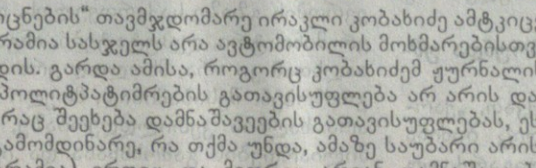 ოცნების“ თავმჯდომარე ირაკლი კობახიძე ამტკიცე
რამია სასჯელს არა ავტომობილის მოხმარებისთვ
დის. გარდა ამისა, როგორც კობახიძემ ჟურნალი
პოლიტპატიმრების გათავისუფლება არ არის და
რაც შეეხება დამნაშავეების გათავისუფლებას, ეს
ამომდინარე, რა თქმა უნდა, ამაზე საუბარი არის